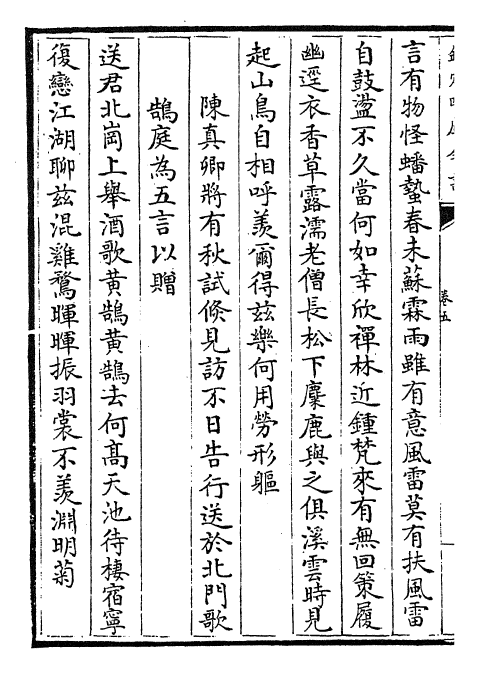 欽定四庫全書
卷五
言有物怪蟠蟄春未蘇霖雨雖有意風雷莫有扶風雷
自鼓盪不久當何如幸欣禪林近鍾梵來有無回策履
幽逕衣香草露濡老僧長松下麋鹿與之俱溪雲時見
起山鳥自相呼羡爾得兹樂何用勞形軀
陳真卿將有秋試倐見訪不日告行送於北門歌
鵠庭為五言以贈
送君北崗上舉酒歌黄鵠黄鵠去何髙天池待棲宿寧
復戀江湖聊兹混雞鶩暉暉振羽裳不羡淵明菊